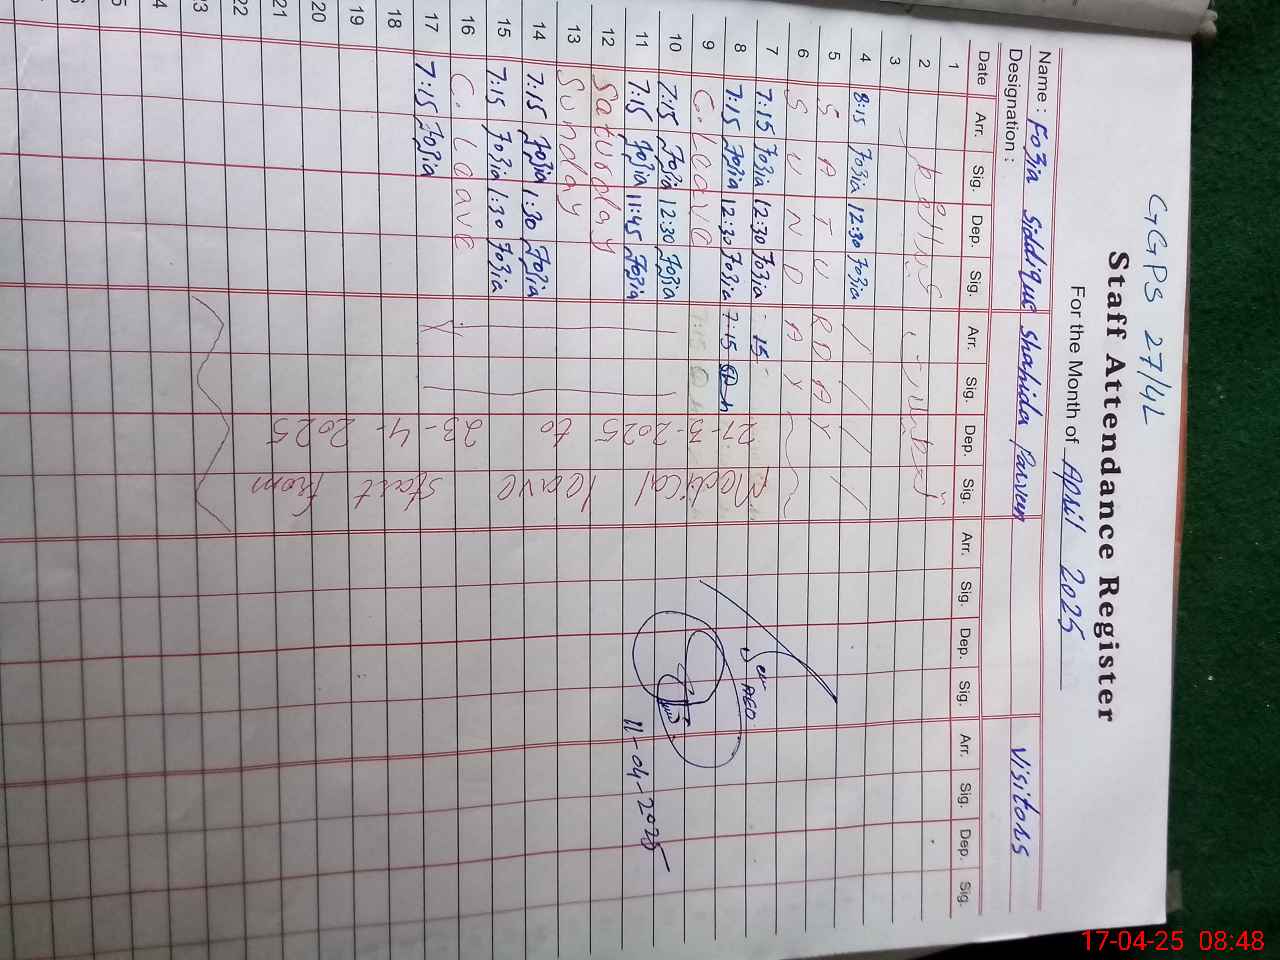 GGPS 27/4L
Staff Attendance Register
For the Month of April 2025
Name : Fozia Siddique Shahida Parveen Visitors
Designation :
Date Arr. Sig. Dep. Sig. Arr. Sig. Dep. Sig. Arr. Sig. Dep. Sig. Arr. Sig. Dep. Sig.
1
2
3
4 8:15 Fozia 12:30 Fozia
5 S A T U R D A Y
6 S U N D A Y
7 7:15 Fozia 12:30 Fozia : 15
8 7:15 Fozia 12:30 Fozia 7:15
9 C. Leave 7:15
10 7:15 Fozia 12:30 Fozia
11 7:15 Fozia 11:45 Fozia
12 Saturday
13 Sunday
14 7:15 Fozia 1:30 Fozia
15 7:15 Fozia 1:30 Fozia
16 C. Leave
17 7:15 Fozia
18
19
20
21
22
23
Medical leave start from
27-3-2025 to 23-4-2025
AEO
11-04-2025
17-04-25 08:48